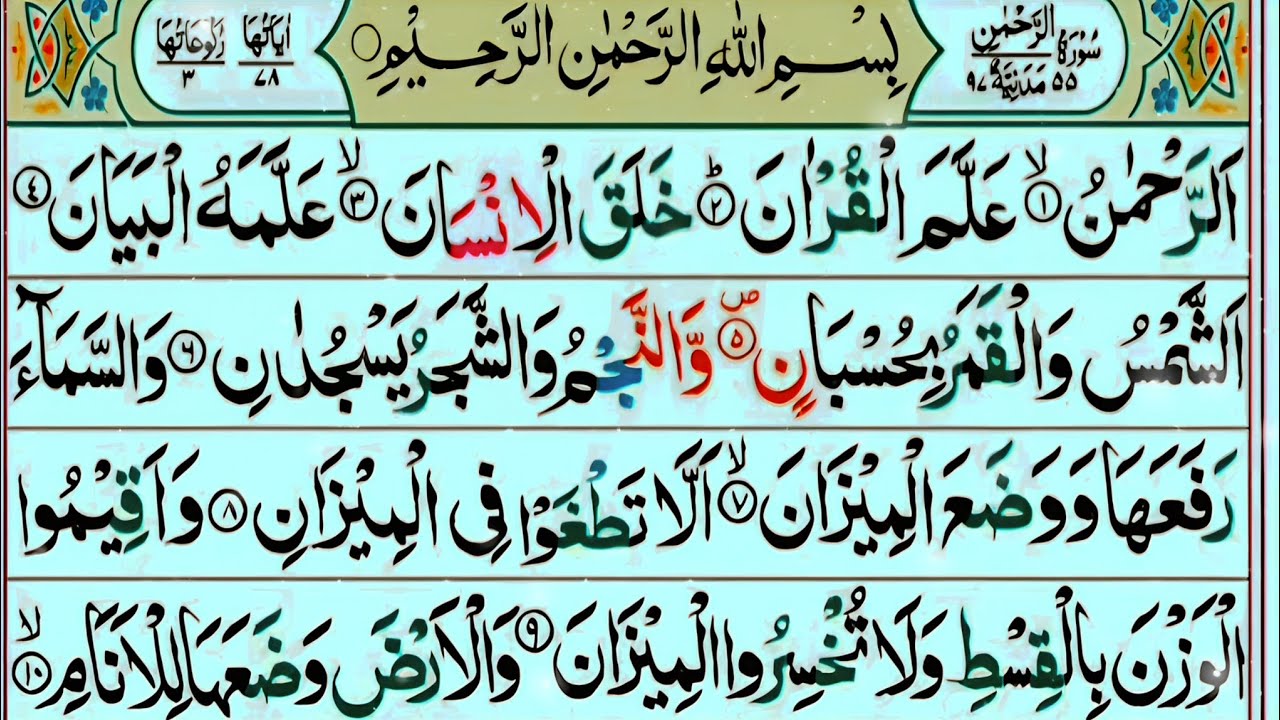 سُوْرَةُ الرَّحْمٰنِ
۵۵ مَدَنِيَّةٌ ۹۷
بِسْمِ اللّٰهِ الرَّحْمٰنِ الرَّحِيْمِ
اٰيَاتُهَا ۷۸
رُكُوْعَاتُهَا ۳
اَلرَّحْمٰنُ ۙ﴿۱﴾ عَلَّمَ الْقُرْاٰنَ ؕ﴿۲﴾ خَلَقَ الْاِنْسَانَ ۙ﴿۳﴾ عَلَّمَهُ الْبَيَانَ ﴿۴﴾
اَلشَّمْسُ وَالْقَمَرُ بِحُسْبَانٍ ۪﴿۵﴾ وَّالنَّجْمُ وَالشَّجَرُ يَسْجُدٰنِ ﴿۶﴾ وَالسَّمَآءَ
رَفَعَهَا وَوَضَعَ الْمِيْزَانَ ۙ﴿۷﴾ اَلَّا تَطْغَوْا فِى الْمِيْزَانِ ﴿۸﴾ وَاَقِيْمُوا
الْوَزْنَ بِالْقِسْطِ وَلَا تُخْسِرُوا الْمِيْزَانَ ﴿۹﴾ وَالْاَرْضَ وَضَعَهَا لِلْاَنَامِ ۙ﴿۱۰﴾